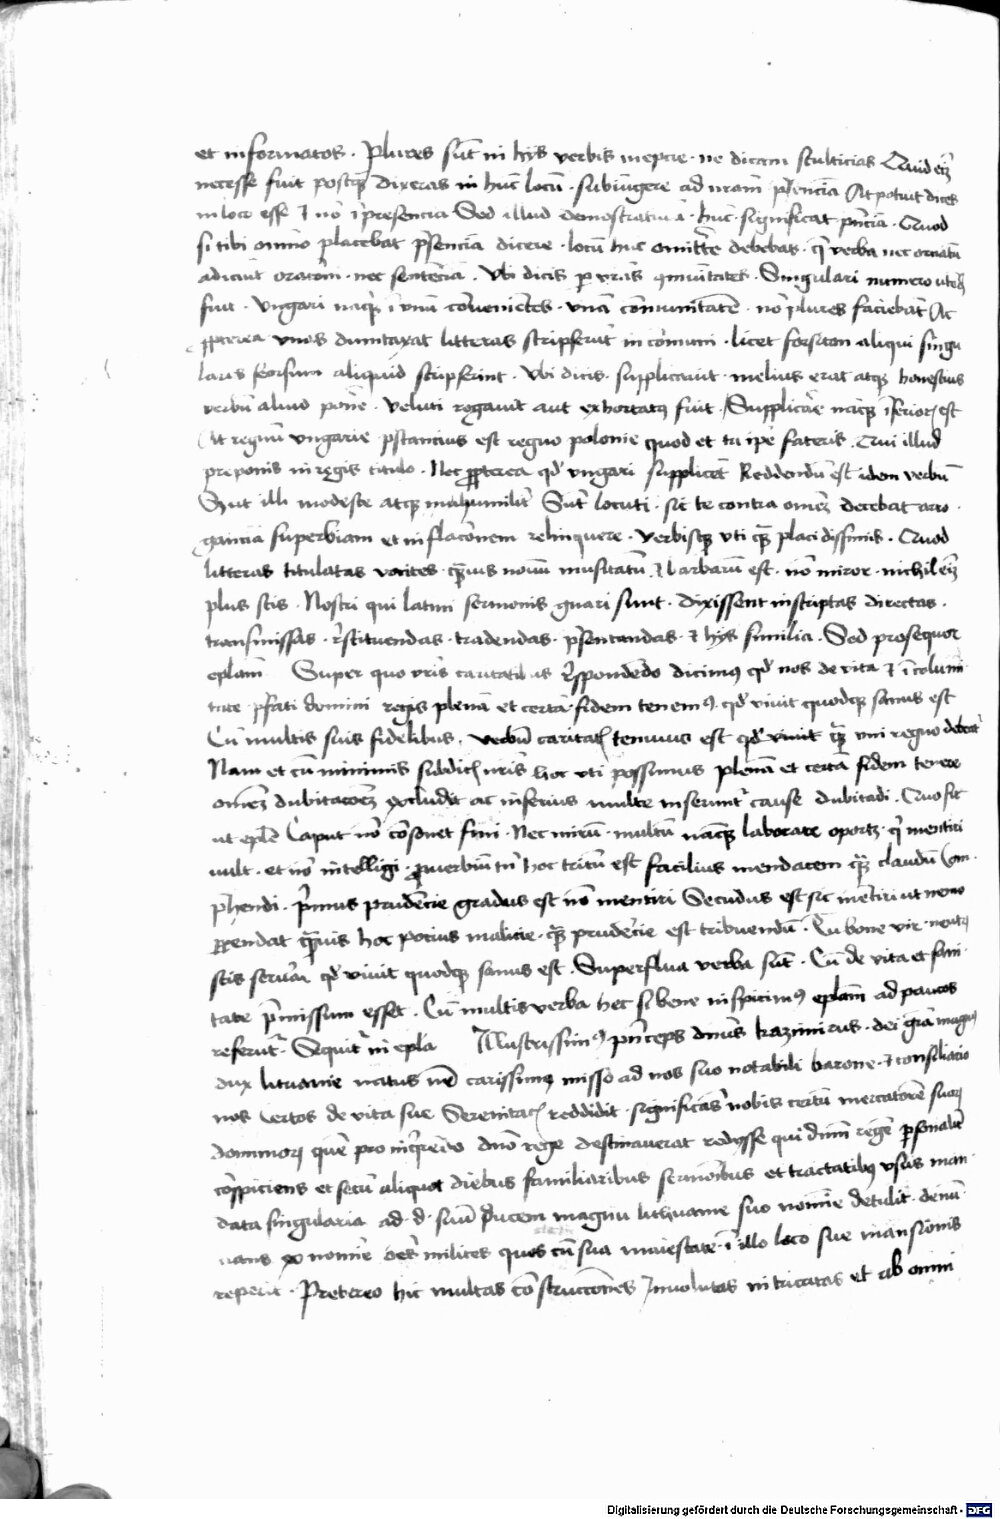 et informatos . Plures sūt in hys verbis ineptie . ne dicam stulticias Quid eī
necesse fuit postq̄ dixeras in hūc locū . subiūgere ad nrām p̄senciā At potuit dices
in loco esse & nō ī presencia Sed illud demōstratiuū . hūc . significat p̄nciā . Quod
si tibi omīno placebat p̄senciā dicere . locū huc omittere debebas . q̄ verba nec ornatū
adiciūt oratōni . nec sentēciā . Vbi dicis p vrās 9mūitates . Singulari numero
fuit . Vngari naq̄ ī vnū cōuenientes . vnā cōmunitatē . nō plures faciebāt Ac
ppterea vnas dumtaxat litteras scripserūt in cōmuni . licet forsitan aliqui singu
laris seorsum aliquid scripserint . Vbi dicis . supplicauit . melius erat atq̄ honestius
verbū aliud ponē . veluti rogauit aut exhortat9 fuit . Supplicāe nācq̄ īferior est
At regnū vngarie p̄stantius est regno polonie quod et tu ip̄e fateris . Qui illud
preponis in regis titulo . Nec ppterea qd̄ vngari supplicēt Reddendū est idem verbū
Sicut illi modeste atq̄ humilit̄ sūt locuti . sic te contra om̄ez decebat arro
ganciā superbiam et inflacōnem relinquere . verbisq̄ vti q̄ placidissimis . Quod
litteras titulatas vocites . q̄uis nouū inusitatū & barbarū est . nō miror . nichil eī
plus scis . Nostri qui latini sermonis gnari sunt . dixissent inscriptas directas .
transmissas . r̄stituendas . tradendas . p̄sentandas . & hys similia . Sed prosequor
ep̄lam Super quo vr̄is caritatibus r̄spondēdo dicim9 qd̄ nos de vita & īcolumi
tate p̄fati domini regis plenā et certā fidem tenem9 . qd̄ viuit quodq̄ sanus est
Cū multis suis fidelibus . verbū caritat̄ tenuius est qd̄ viuit q̄ vni regno debeat
Nam et cū minimis subdit̄ nr̄is hoc vti possumus plenā et certā fidem tenere
om̄ez dubitacōez excludit ac inferius multe inserunt̄ cause dubitādi . Quo fit
ut ep̄le Caput nō cōsonet fini . Nec mirū . multū nācq̄ laborare oportz . q̄ mentiri
vult . et nō intelligi . puerbiū tn̄ hoc tritū est facilius mendacem q̄ claudū Com
p̄hendi . p̄imus prudēcie gradus est nō mentiri Secūdus est sic mētiri ut nemo
pendat q̄uis hoc pocius malicie . q̄ prudēcie est tribuendū . Tu bone vir neutrū
scis qd̄ viuit quodq̄ sanus est . Superflua verba sūt . Cū de vita et sani
tate p̄missum esset . Cū multis verba hec si bene inspicim9 ep̄lam ad paucos
referūt̄ . Sequit̄ in ep̄la Illustrissim9 p̄nceps dn̄us kazimirus . dei grā magn9
dux lituanie natus carissim9 misso ad nos suo notabili barone . & consiliario
nos certos de vita sue Serenitat̄ reddidit . significās nobis certū mercatorē suor̄
dominor̄ quē pro inq̄rendo dn̄o rege destinauerat redysse qui dnm̄ regē p̄sonalit̄
cōspiciens et secū aliquot diebus familiaribus sermōibus et tractatib9 vsus man
data singularia ad . d . suū ducem magnū lithuanie suo nomīe detulit . denū
cians ex nomīe oēs milites quos cū sua maiestate . ī illo loco sue mansionis
reperit . Pretereo hic multas cōstrucciōes Inuolutas intricatas et ab omni
Digitalisierung gefördert durch die Deutsche Forschungsgemeinschaft - DFG